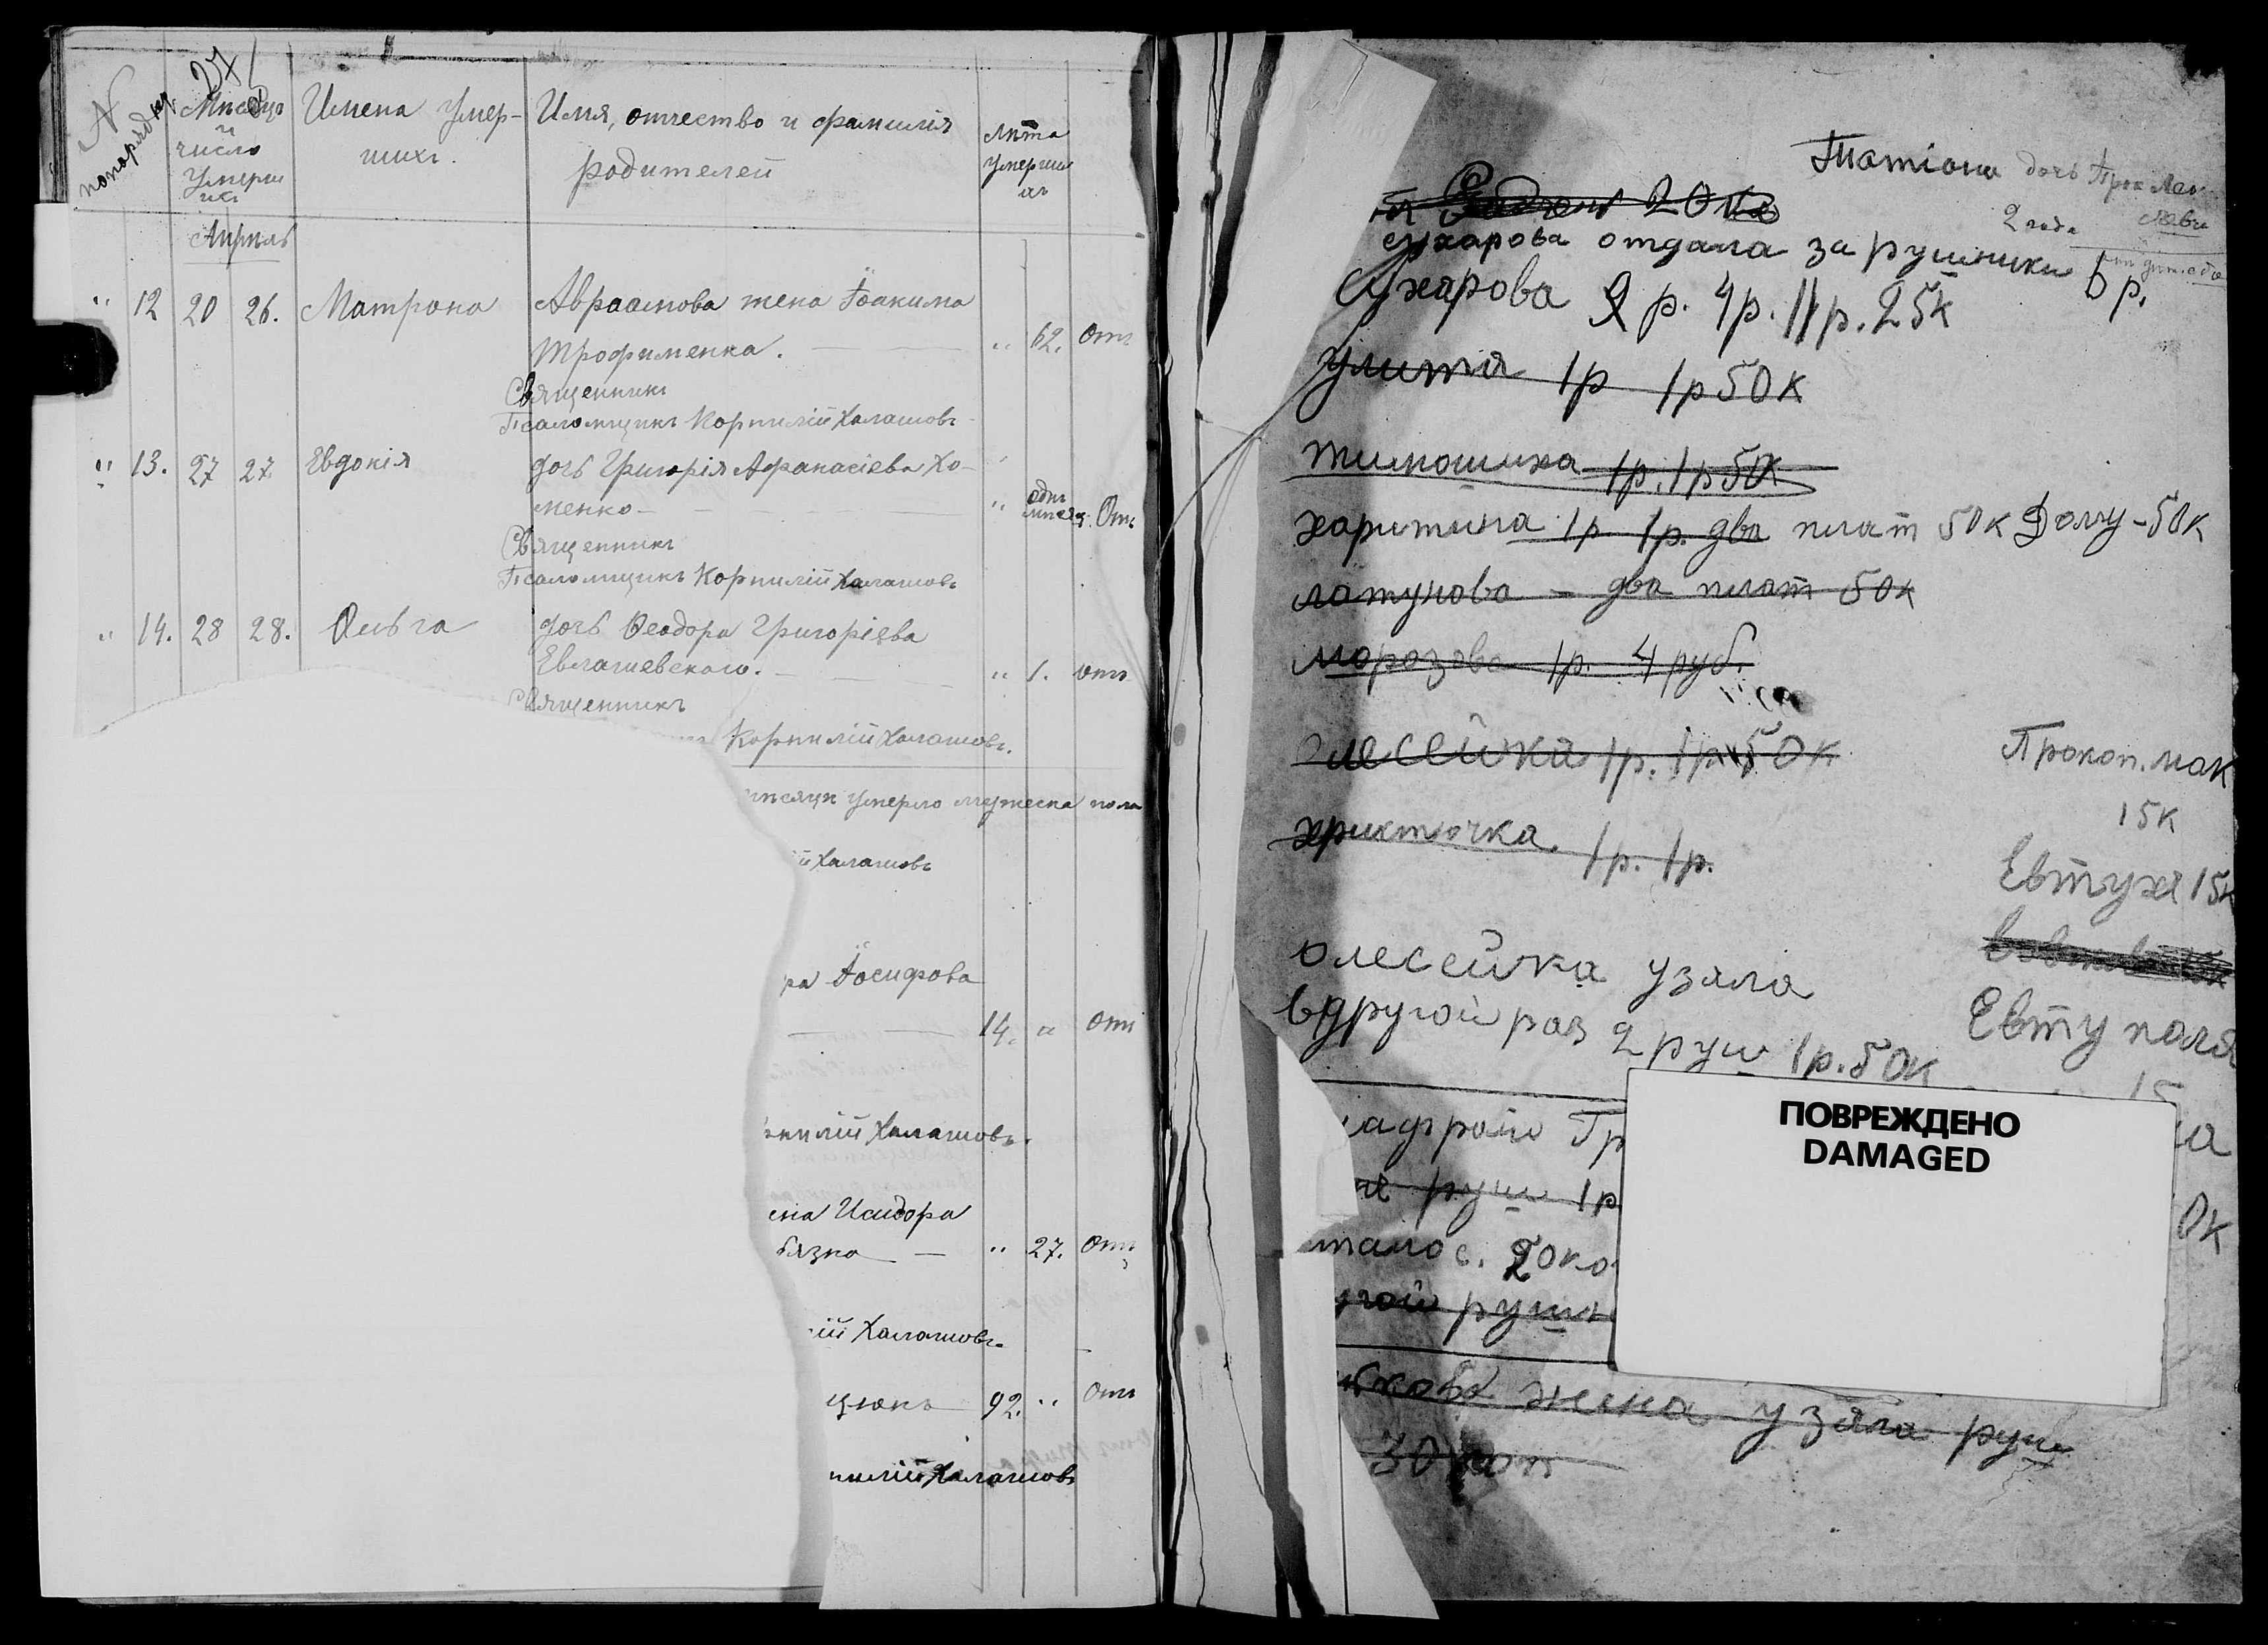 27
N
по порядку
Мѣсяцъ
и
число
умерш
ихъ
Имена умер-
шихъ.
Имя, отчество и фамилія
родителей
Лѣта
умерш
ихъ
Апрель
" 12 20 26. Матрона Авраамова жена Іоакима
Трофименка. " 62. Отъ
Священникъ
Псаломщикъ Корнилій Халашовъ
" 13. 27 27 Евдокія дочь Григорія Афанасіева Хо-
менко " одн мѣсяц. Отъ
Священникъ
Псаломщикъ Корнилій Халашовъ
" 14. 28 28. Ольга дочь Ѳеодора Григоріева
Евлашевскаго. " 1. отъ
Священникъ
Корнилій Халашовъ.
мѣсяцѣ умерло мужеска пола
й Халашовъ
ра Іосифова
14. " отъ
рнилій Халашовъ.
ена Исидора
бязко " 27. Отъ
ій Халашовъ
цюкъ 92. " Отъ
нилій Халашовъ
Татіана дочь Прок
2 года
20 к
сухарова отдала за рушники 6 р.
Сухарова 2 р. 4р. 11р. 25к
улита 1р 1р 50к
тимошиха 1р. 1р 50к
харитина 1р 1р. два плат 50к Долгу - 50к
латунова - два плат 50к
морозова 1р. 4 руб.
олесейка 1р. 1р 50к
христючка. 1р. 1р.
Прокоп. мак
15к
Евтухя 15к
олесейка узяла
вдругой раз 2 руш 1р. 50к
Евту
15
Гр
руш 1р
талос. 20ко
угой руш
ПОВРЕЖДЕНО
DAMAGED
0к
жена узяла руш
30 коп